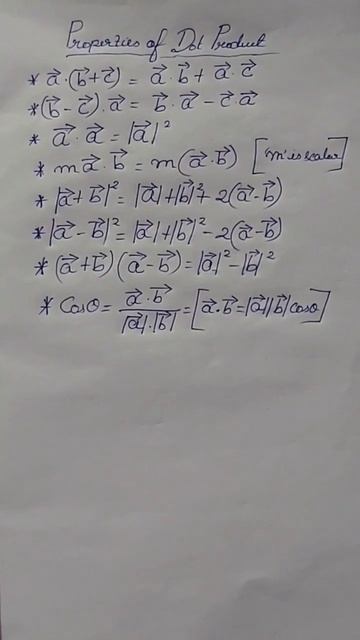 Properties of Dot Product
* a⃗·(b⃗+c⃗) = a⃗·b⃗ + a⃗·c⃗
* (b⃗ - c⃗).a⃗ = b⃗.a⃗ - c⃗.a⃗
* a⃗·a⃗ = |a⃗|²
* ma⃗.b⃗ = m(a⃗.b⃗) ['m' is scalar]
* |a⃗+b⃗|² = |a⃗|+|b⃗|²+ 2(a⃗·b⃗)
* |a⃗-b⃗|² = |a⃗|+|b⃗|²- 2(a⃗-b⃗)
* (a⃗+b⃗)(a⃗-b⃗) = |a⃗|²-|b⃗|²
* Cosθ = a⃗.b⃗ / |a⃗|.|b⃗| = [a⃗.b⃗=|a⃗||b⃗|cosθ]